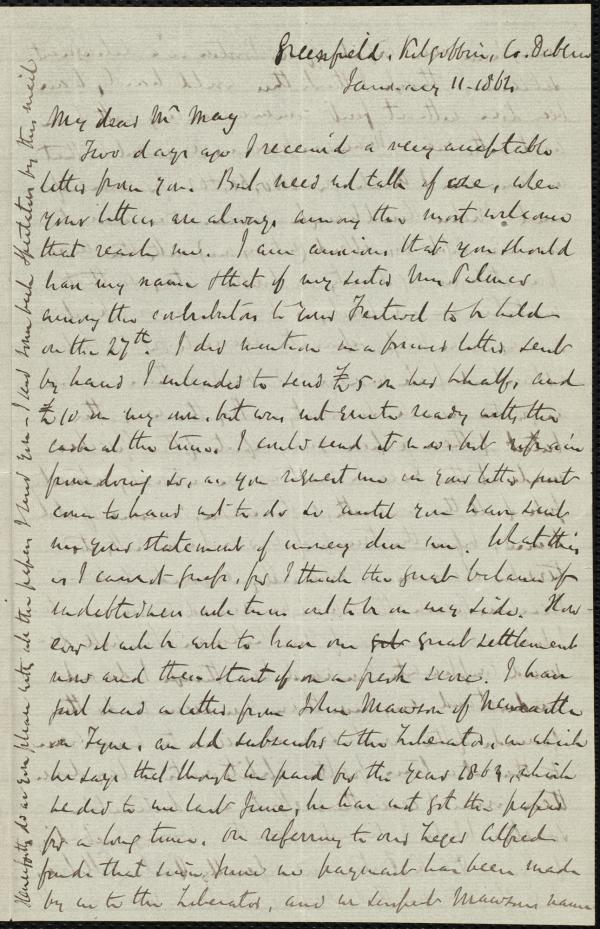 Greenfield, Kilgobbin, Co. Dublin
January 11. 1864
My dear Mr May
Two days ago I received a very acceptable
letter from you. But need not talk of one, when
your letters are always among the most welcome
that reach me. I am anxious that you should
have my name & that of my sister Mrs Palmer
among the contributors to your Festival to be held
on the 27th. I did mention in a former letter sent
by hand I intended to send £5 on her behalf, and
£10 on my own, but was not quite ready with the
cash at the time. I could send it now, but refrain
from doing so, as you request me in your letter just
come to hand not to do so until you have sent
me your statement of money due me. What this
is I cannot guess, for I think the great balance of
indebtedness will turn out to be on my side. How-
ever it will be well to have one great settlement
now and then & start off on a fresh score. I have
just had a letter from John Mawson of Newcastle
on Tyne, an old subscriber to the Liberator, in which
he says that though he paid for the year 1863, which
he did to me last June, he has not got the paper
for a long time. On referring to our Leger Alfred
finds that since June no payment has been made
by us to the Liberator, and we suspect Mawson's name
do as you please with all the papers I send you - I send some back Spectators by this mail